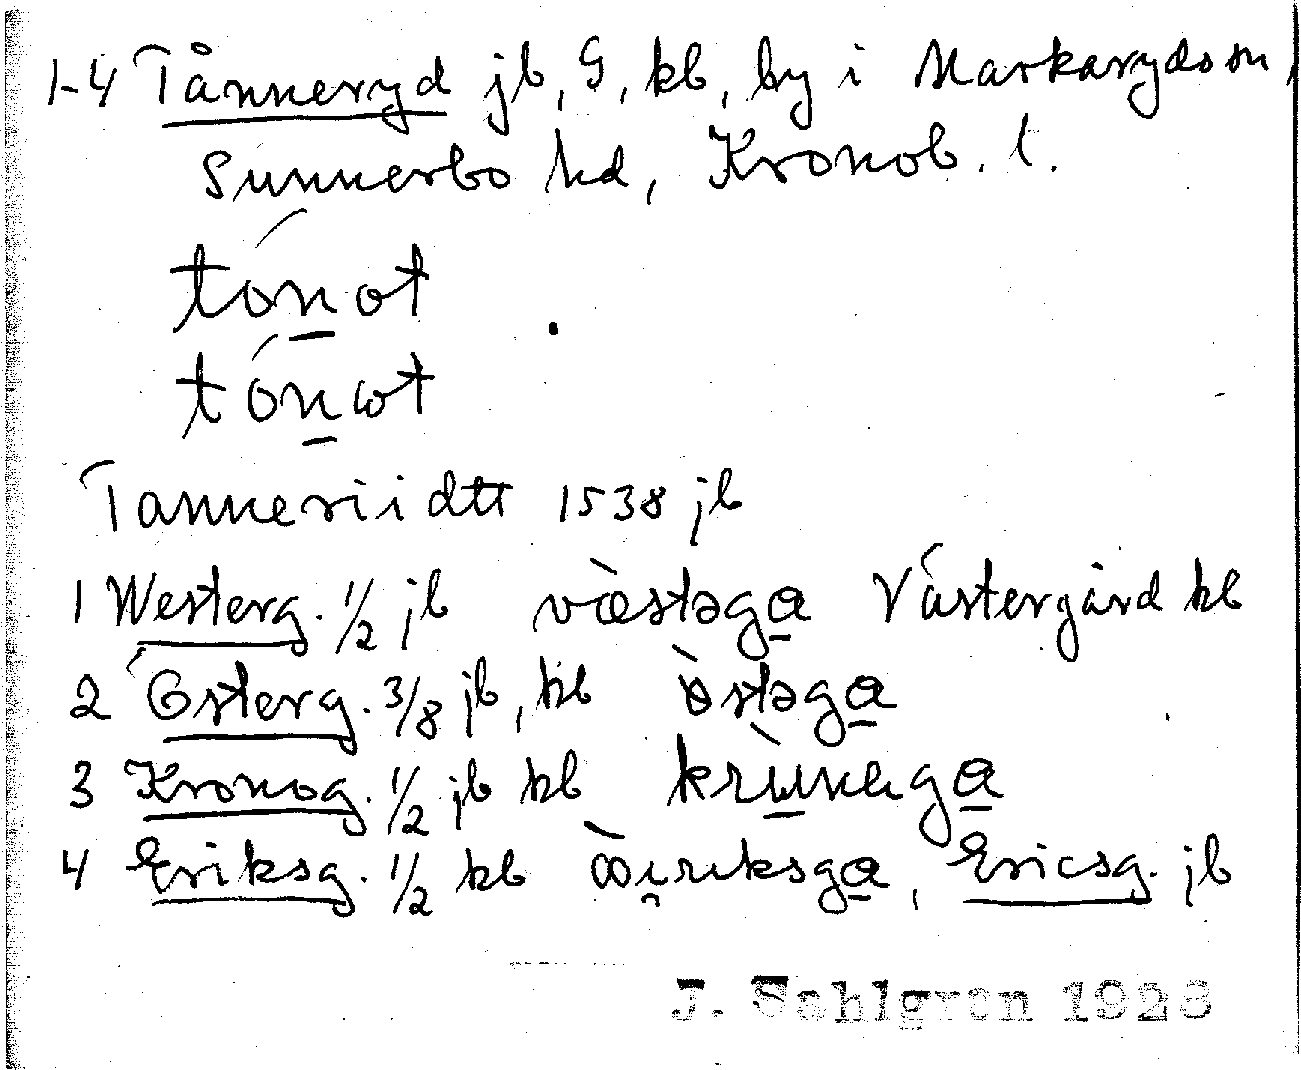 1-4 Tånneryd jb, G, kb, by i Markaryds sn,
Sunnerbo hd, Kronob. l.
tón̲ot
tón̲ωt
Tanneriidtt 1538 jb
1 Westerg. 1/2 jb væ̀stəga̲ Västergård kb
2 Österg. 3/8 jb, kb ò̀stəga̲
3 Kronog. 1/2 jb kb krùnaga̲
4 Eriksg. 1/2 kb æ̀i̯riksga̲, Ericsg. jb
J. Sahlgren 1928